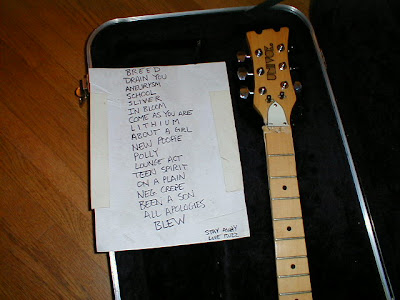 BREED
DRAIN YOU
ANEURYSM
SCHOOL
SLIVER
IN BLOOM
COME AS YOU ARE
LITHIUM
ABOUT A GIRL
NEW
POLLY
LOUNGE ACT
TEEN SPIRIT
ON A PLAIN
NEG CREEP
BEEN A SON
ALL APOLOGIES
BLEW
STAY AWAY
LOVE BUZZ
UNIVOX